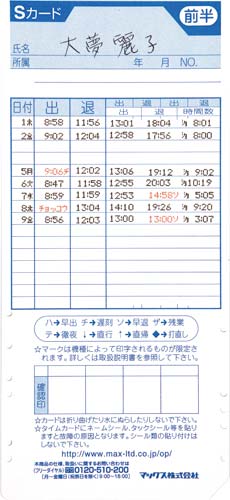 Sカード 前半
氏名 大夢 麗子
所属 年 月 NO.
日付 出 退 出 退 出 退
時間数
1木 8:58 11:56 13:01 18:04 8:01
2金 9:02 12:04 12:58 17:56 8:00
5月 9:06チ 12:02 13:06 19:12 9:02
6火 8:47 11:58 12:55 20:03 10:19
7水 8:59 11:59 12:53 14:58ソ 5:05
8木 チョッコウ 13:04 14:10 19:26 9:20
9金 8:56 12:03 13:00 13:00ソ 3:07
ハ→早出 チ→遅刻 ソ→早退 ザ→残業
テ→徹夜 ↓→直行 ↑→直帰 ◆→打直し
☆マークは機種によって印字されるものが限定されます。詳しくは取扱説明書を参照して下さい。
確認印
☆カードは折り曲げたり水にぬらしたりしないで下さい。
☆タイムカードにネームシール、タックシール等を貼りますと故障の原因となります。シール類の貼り付けはしないで下さい。
http://www.max-ltd.co.jp/op/
本商品の仕様、取扱いに関するお問い合わせは
(フリーダイヤル) 0120-510-200
(月〜金曜日(祝祭日を除く)9:00〜18:00)
マックス株式会社